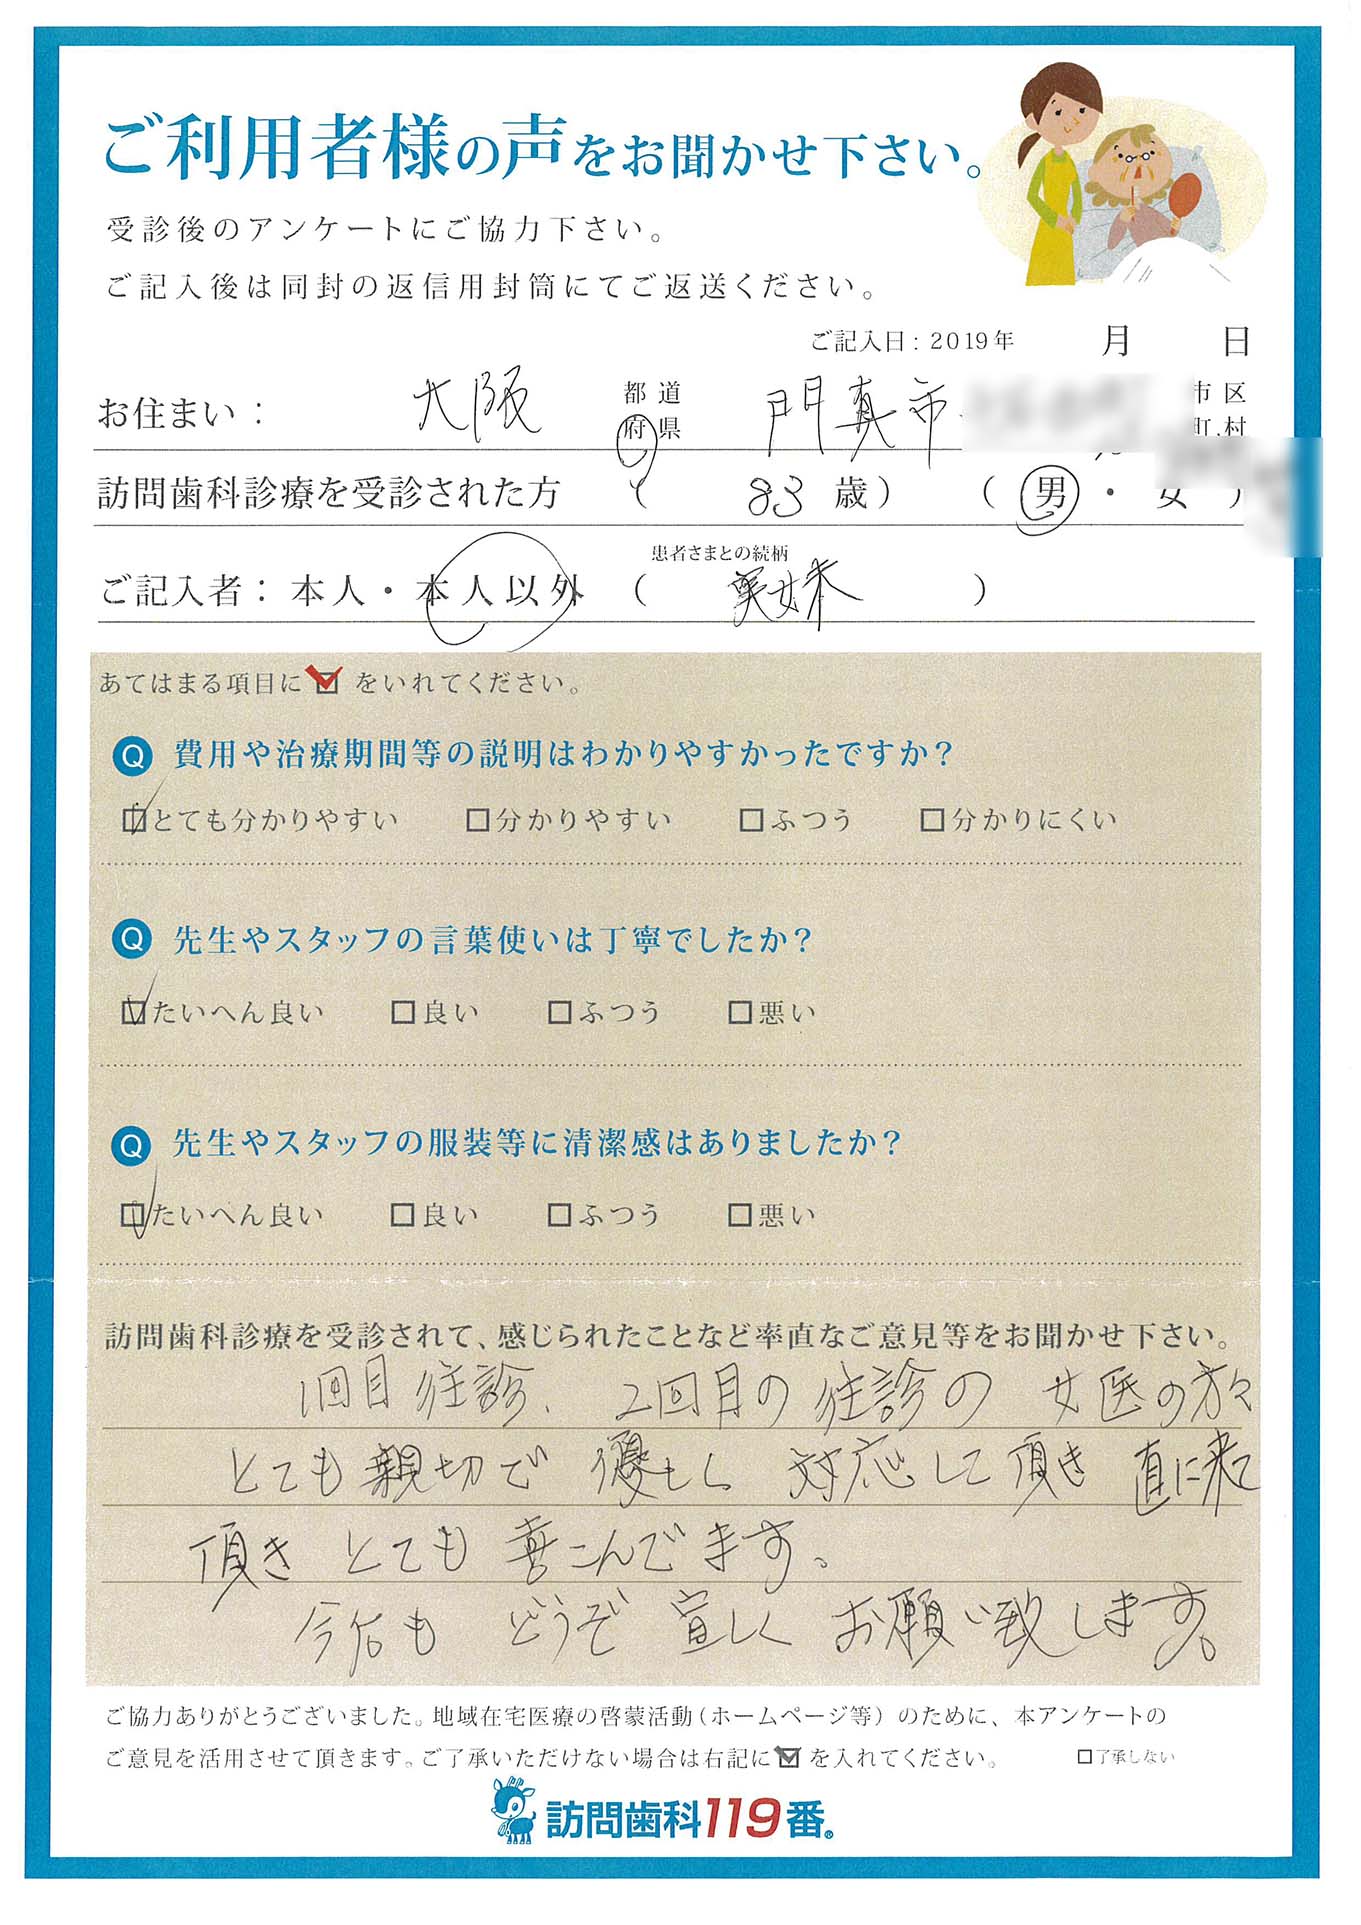 ご利用者様の声をお聞かせ下さい。
受診後のアンケートにご協力下さい。
ご記入後は同封の返信用封筒にてご返送ください。
ご記入日：2019年 月 日
お住まい： 大阪 都道府県 門真市 市区町村
訪問歯科診療を受診された方 （ 83 歳） （ 男 ・ 女 ）
患者さまとの続柄
ご記入者： 本人・本人以外 （ 実妹 ）
あてはまる項目に☑をいれてください。
Q 費用や治療期間等の説明はわかりやすかったですか？
☑とても分かりやすい □分かりやすい □ふつう □分かりにくい
Q 先生やスタッフの言葉使いは丁寧でしたか？
☑たいへん良い □良い □ふつう □悪い
Q 先生やスタッフの服装等に清潔感はありましたか？
☑たいへん良い □良い □ふつう □悪い
訪問歯科診療を受診されて、感じられたことなど率直なご意見等をお聞かせ下さい。
1回目往診、2回目の往診の 女医の方々
とても親切で 優しく 対応して頂き 直に来て
頂き とても 喜こんでます。
今后も どうぞ 宜しく お願い致します。
ご協力ありがとうございました。地域在宅医療の啓蒙活動（ホームページ等）のために、本アンケートの
ご意見を活用させて頂きます。ご了承いただけない場合は右記に☑を入れてください。 □了承しない
訪問歯科119番®